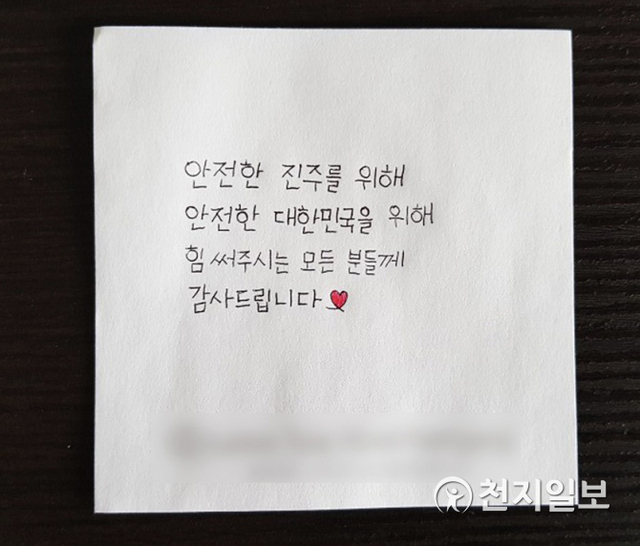 안전한 진주를 위해
안전한 대한민국을 위해
힘써주시는 모든 분들께
감사드립니다
천지일보